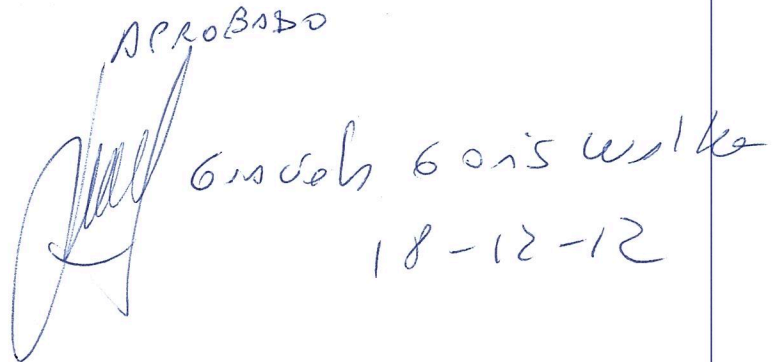 APROBADO
Graciela Goñi Walker
18-12-12